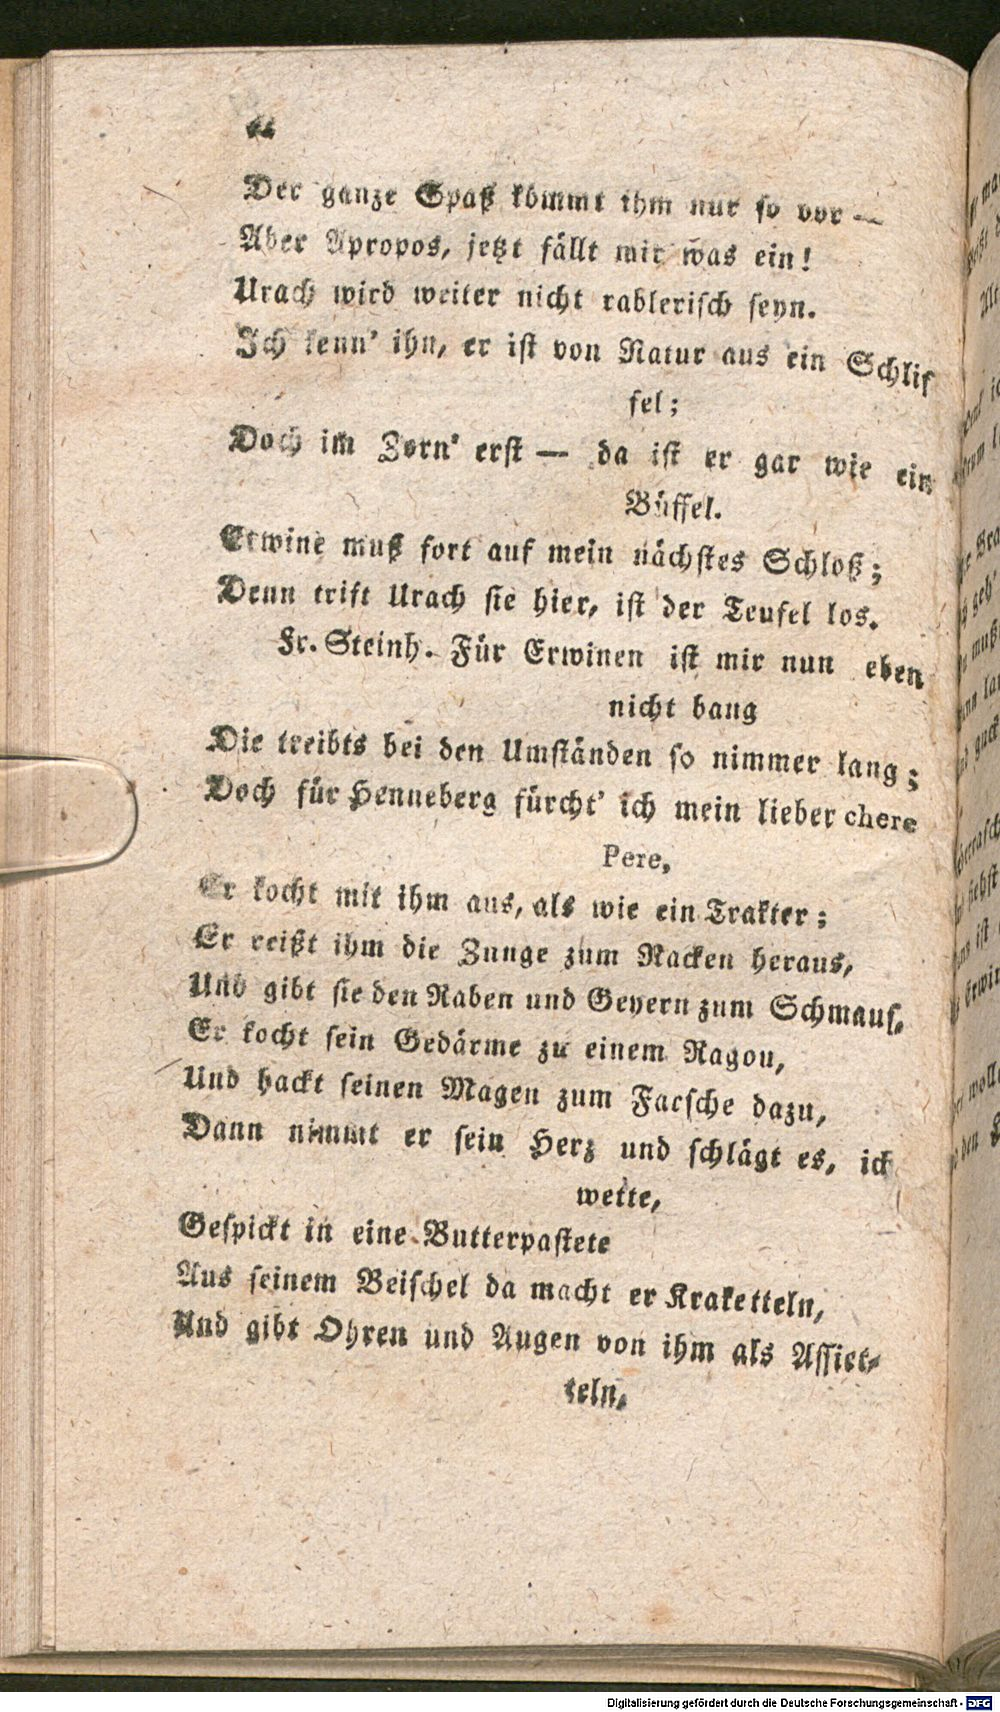 Der ganze Spaß kömmt ihm nur so vor —
Aber Apropos, jetzt fällt mir was ein!
Urach wird weiter nicht rablerisch seyn.
Ich kenn' ihn, er ist von Natur aus ein Schlif
fel;
Doch im Zorn' erst — da ist er gar wie ein
Büffel.
Erwine muß fort auf mein nächstes Schloß;
Denn trift Urach sie hier, ist der Teufel los.
Fr. Steinh. Für Erwinen ist mir nun eben
nicht bang
Die treibts bei den Umständen so nimmer lang;
Doch für Henneberg fürcht' ich mein lieber chere
Pere,
Er kocht mit ihm aus, als wie ein Trakter;
Er reißt ihm die Zunge zum Nacken heraus,
Und gibt sie den Raben und Geyern zum Schmaus,
Er kocht sein Gedärme zu einem Ragou,
Und hackt seinen Magen zum Faesche dazu,
Dann nimmt er sein Herz und schlägt es, ich
wette,
Gespickt in eine Butterpastete
Aus seinem Beischel da macht er Kraketteln,
Und gibt Ohren und Augen von ihm als Assiet-
teln,
Digitalisierung gefördert durch die Deutsche Forschungsgemeinschaft - DFG